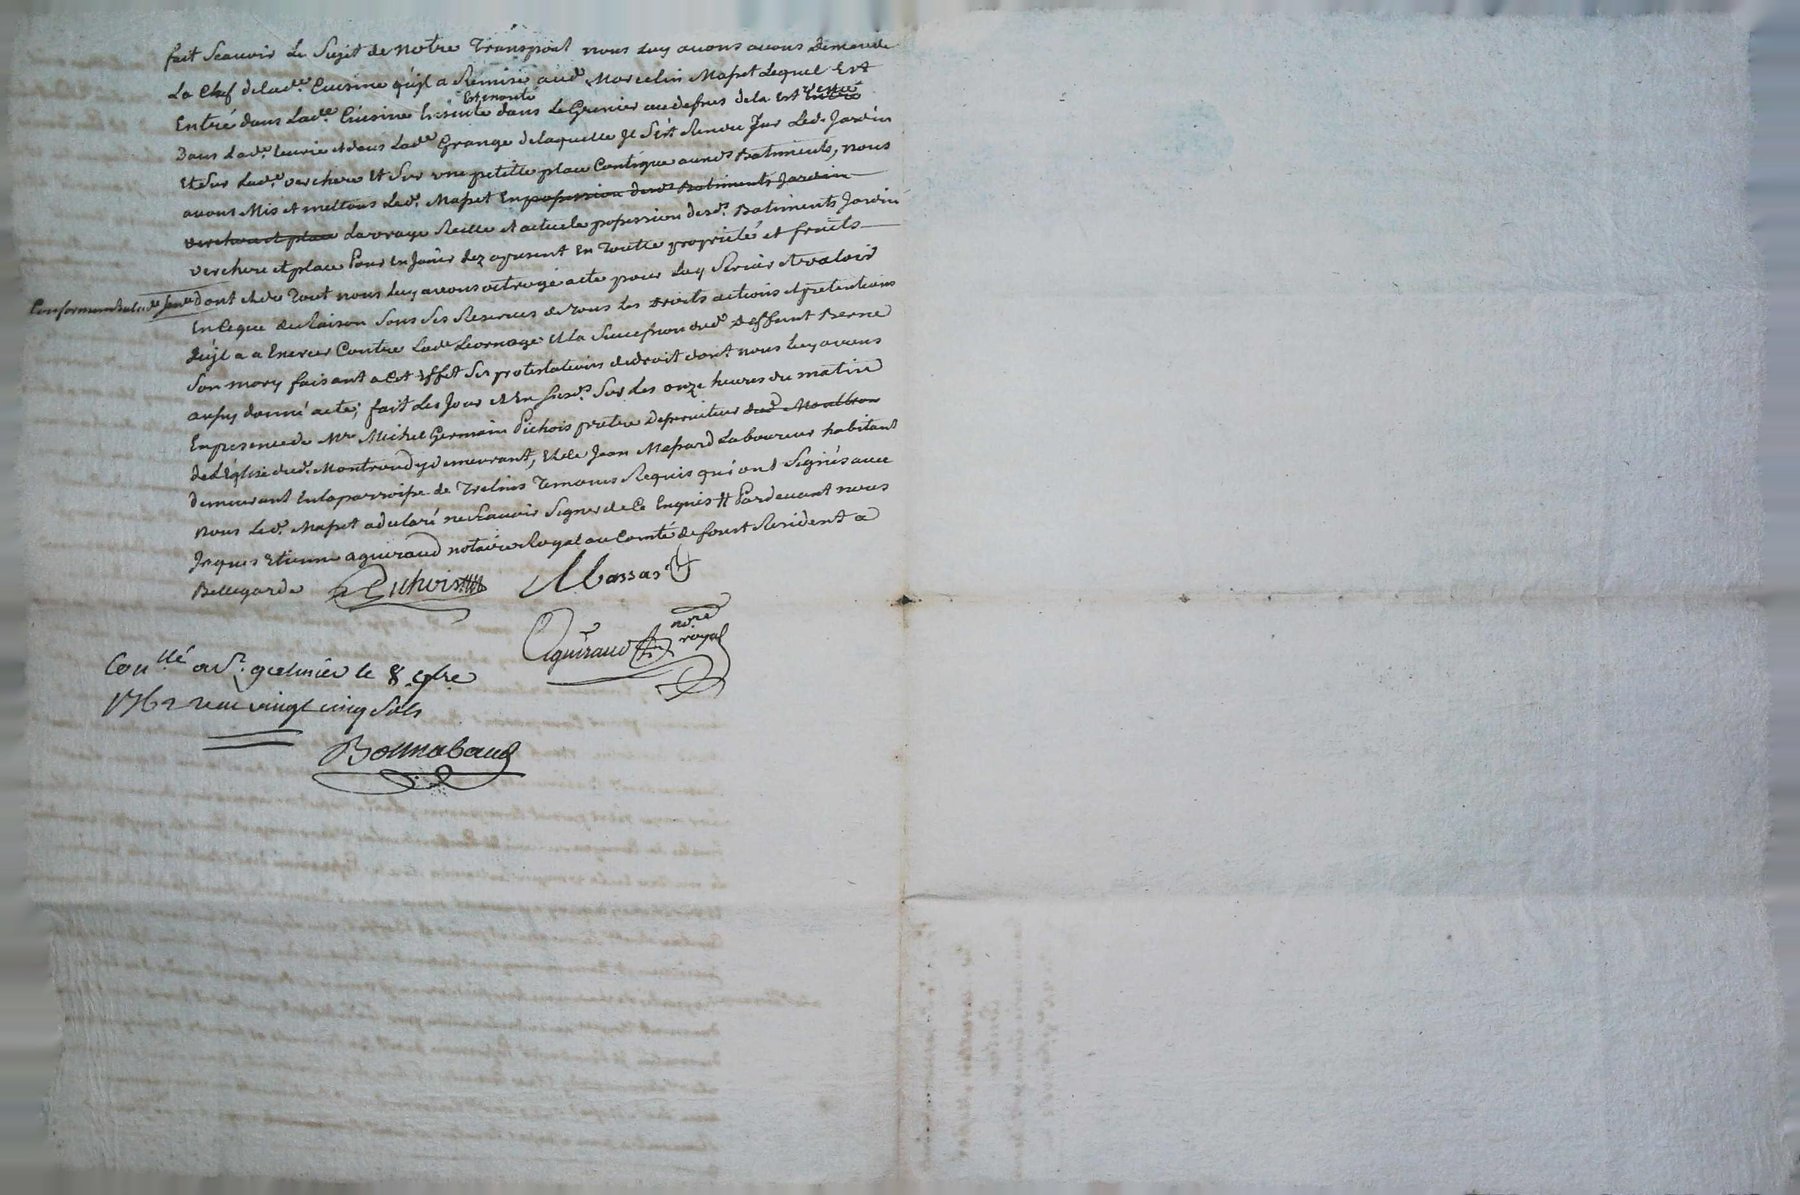 fait Scavoir Le Sujet de notre Transport nous Luy avons avons demandé
La Chef de lad.e Cuisine qu'jl a Remise aud. Marcelin Masset Lequel Est
Est monté venu
Entré dans Lad.e Cuisine Ensuite dans Le Grenier au dessus de la Est Entré
Dans Lad.e Ecurie et dans Lad.e Grange de laquelle Jl S'est Rendu Sur Led. Jardin
Et Sur Lad.e verchere Et Sur une petitte place Contigue auxd. Batiments, nous
avons Mis et mettons Led. Masset En possession desd. Batiments Jardin
verchere et place La vraye Réelle et actuele possession desd. Batiments Jardin
verchere et place Pour en Jouir dez apresent En Toutte propriété et fruits
Conformement a lad.e Sent.ce dont et du Tout nous Luy avons octroyé acte pour Luy Servir et valoir
En Ce que de Raison Sous Ses Reserves de Tous Les Droits actions et pretentions
qu'jl a a Exercer Contre Lad. Leornage et La Succession dud. Deffunt Berne
Son mary faisant a Cet Effet Ses protestations de droit dont nous Luy avons
aussy donné acte; fait Les Jour et an Susd. Sur Les onze heures du matin
En presence de Mre Michel Germain Pichois pretre Desserviteur dud. Montbron
de L'Eglise dud. Montrond y demeurant, Et de Jean Massard Laboureur habitant
demeurant En la parroisse de Trelins Temoins Requis qui ont Signés avec
nous Led. Masset a declaré ne Scavoir Signer de Ce Enquis Pardevant nous
Jaques Etienne aguiraud notaire Royal au Comté de forest Resident a
Bellegarde Pichois Massard
Aguiraud nore royal
Con.llé a St. galmier le 8 9bre
1762 recu vingt cinq Sols
Bonnabaud